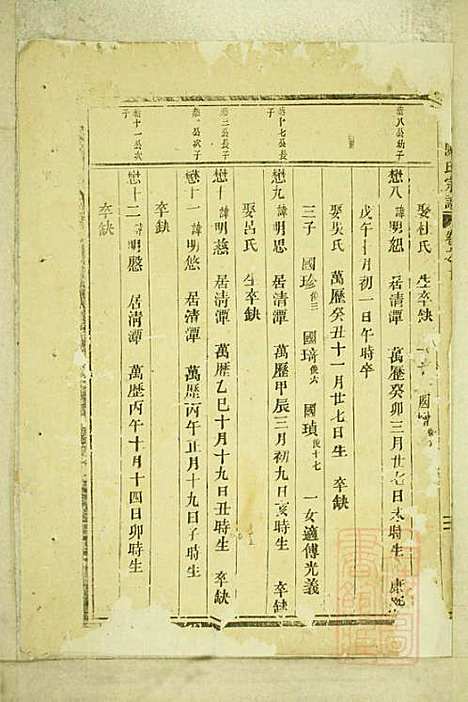 氏宗譜
娶杜氏 生卒缺 國
慜八公幼子
懋八 諱明恕 居清潭 萬歷癸卯三月廿七日未時生 康熙
戊午十月初一日午時卒
娶吳氏 萬歷癸丑十一月廿七日生 卒缺
三子 國珍 國琦 國禎 一女適傅光義
公長子
懋九 諱明思 居清潭 萬歷甲辰三月初九日亥時生 卒缺
娶呂氏 生卒缺
三公長子
懋十 諱明慈 居清潭 萬歷乙巳十月十九日丑時生 卒缺
公次子
懋十一 諱明悠 居清潭 萬歷丙午正月十九日子時生
卒缺
十一公次子
懋十二 諱明慇 居清潭 萬歷丙午十月十四日卯時生
卒缺